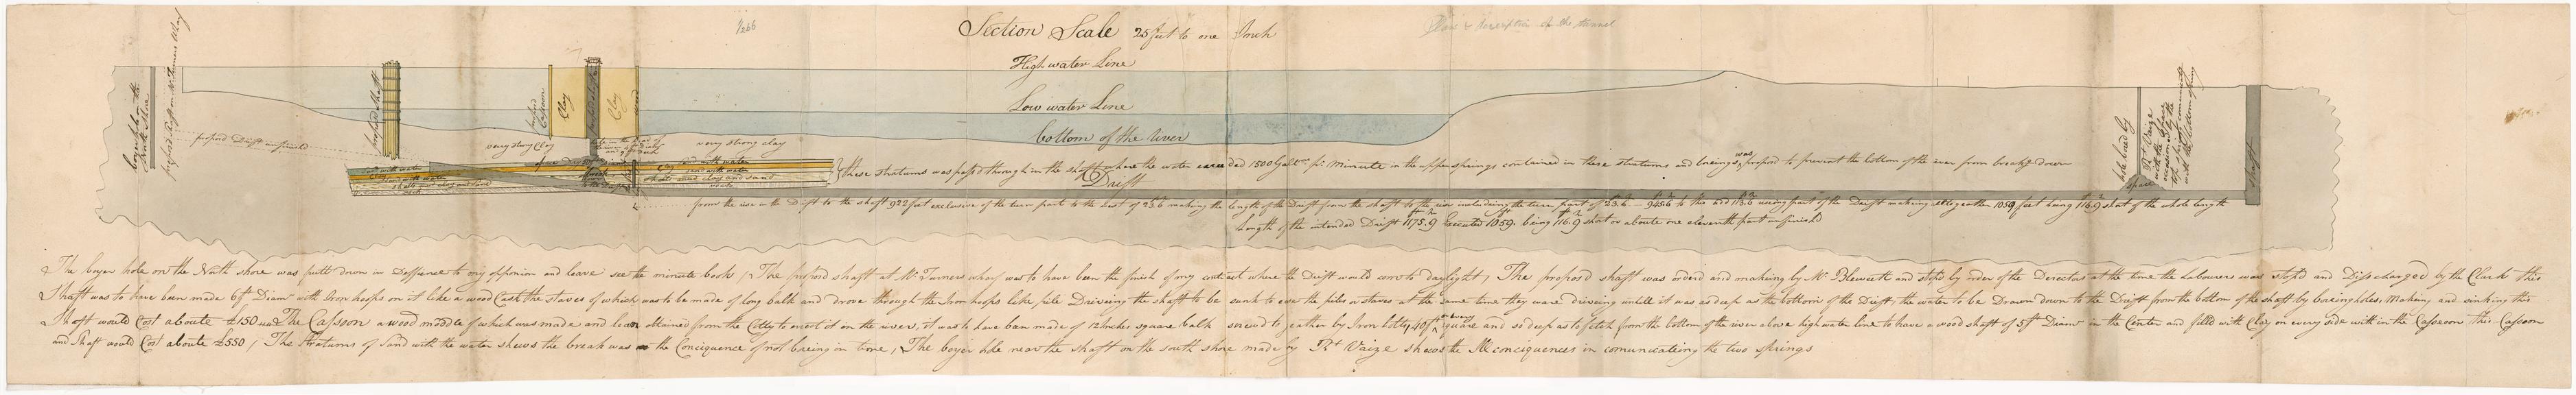 1/266
Section Scale 25 feet to one Inch
Plan & description of the tunnel
High water Line
Low water Line
bottom of the river
boyer hole on the North Shore
propos'd Shaft on Mr Turners Way
propos'd Drift unfinis'd
propos'd Shaft
propos'd Cassoon
Clay
Clay
wood
very strong Clay
very strong clay
sand with water
sand with water
shells mud clay and sand
sand with water
sand with water
shells mud clay and sand
these stratums was pass'd through in the shaft where the water exceeded 1500 Gallons pr minute in the upper springs contained in these stratums and boreings was propos'd to prevent the bottom of the river from breaking down
Drift
from the rise in the Drift to the shaft 922 feet exclusive of the turn part to the best of 23.6 making the length of the Drift from the shaft to the rise including the turn part of 23.6 - 945.6 to the end 113.6 using part of the Drift making altogeather 1059 feet being 116.9 short of the whole length
Length of the intended Drift 1175.9 Executed 1059. being 116.9 short or aboute one eleventh part unfinish'd
hole bored by
Rt Vaize
with the
top springs comunicate
with the bottom spring
space
Shaft
The boyer hole on the North shore was putt down in Defference to my opponion and leave see the minute book / The propos'd shaft at Mr Turners wharf was to have been the finish of my contract where the Drift would come to daylight / The propos'd shaft was orderd and makeing by Mr Blewett and stopd by order of the Director at the time the Labourers was stopd and Disscharged by the Clark this
Shaft was to have been made 6 ft Diamr with Iron hoops on it like a wood Cask the staves of which was to be made of long balk and drove through the Iron hoops like pile Driveing the shaft to be sunk to ease the piles or staves at the same time they ware driveing untill it was as deep as the bottom of the Drift, the water to be Drawn down to the Drift from the bottom of the shaft by boreing holes, Makeing and sinking this
Shaft would Cost aboute £150 The Cassoon a wood moddle of which was made and lean obtained from the Citty to erect it on the river, it was to have been made of 12 Inches square balk screwd to geather by Iron bolts, 40 ft every square and so deep as to fetch from the bottom of the river above high water line to have a wood shaft of 5 ft Diamr in the Center and filld with Clay on every side with in the Cassoon this Cassoon
and Shaft would Cost aboute £550 / The Stratums of Sand with the water shews the break was the Conciquence of not boreing in time / The boyer hole near the shaft on the south shore made by Rt Vaize shews the Ill conciquences in comunicateing the two springs